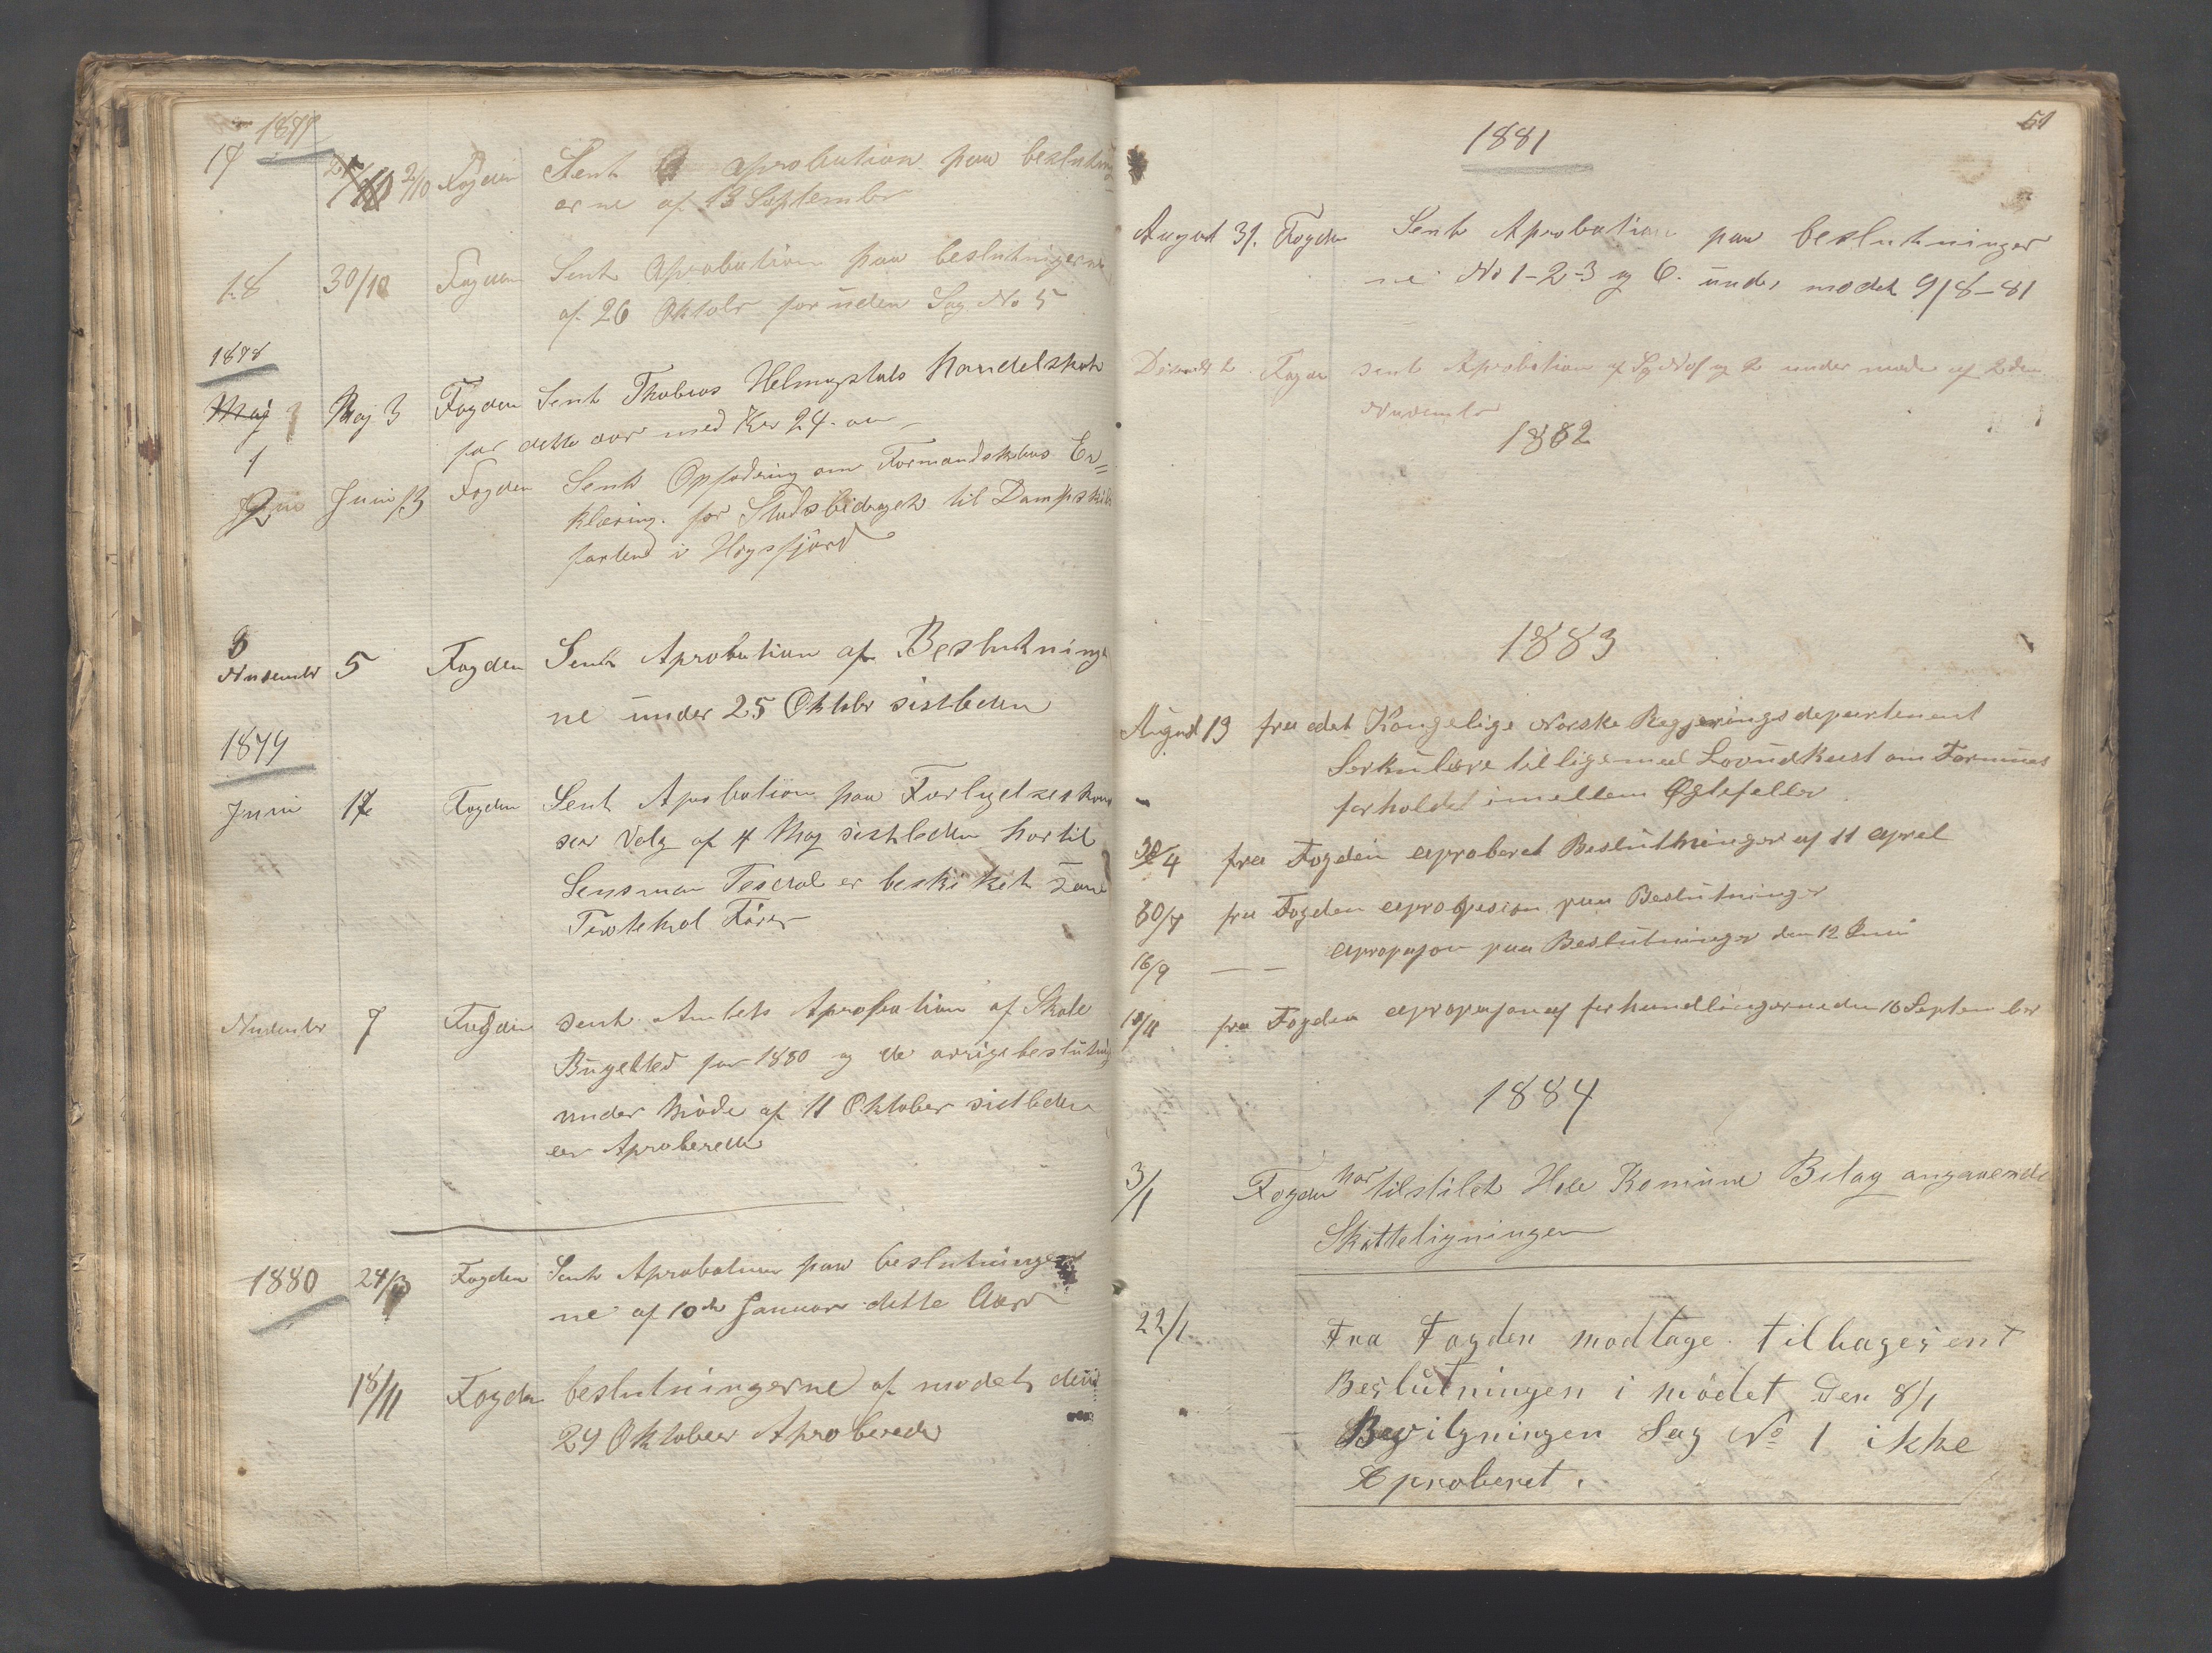 1877
17 2/10 Fogden Sent Aprobation paa beslutning
erne af 13 September
18 30/10 Fogden Sent Aprobation paa beslutnigerne
af 26 Oktobr foruden Sag No 5
1878
Maj
1 Maj 3 Fogden Sent Thobias Helmigstals Handelskat
for dette aar med Kr 24.
2 Juni 13 Fogden Sent Opfodring om Formandskabs Er=
klæring for Stads bidraget til Dampskibs
farten i Høgsfjord
3
November 5 Fogden Sent Aprobation af Beslutninge
ne under 25 Oktobr sistleden
1879
Juni 17 Fogden Sent Aprobation paa Forligelseskomi
sær Valg af 4 Maj sistleden hortil
Lensman Tesdal er beskiket som
Protekol Fører
November 7 Fogden sent Amtets Aprobation af Skole
Bugetted for 1880 og de øvrige beslutnig
under Møde af 11 Oktober sistleden
er Aproberede
1880 24/3 Fogden Sent Aprobation paa beslutninger
ne af 10de Januar dette Aar
18/11 Fogden beslutningerne af mødet den
29 Oktober Aproberede
51
1881
August 31. Fogden Sent Aprobation paa beslutninger
ne No 1-2-3 og 6. under mødet 9/8-81
Fogden sent Aprobation af Sag No 1 og 2 under møde af 2den
November
1882
1883
August 19 fra det Kongelige Norske Regjerings departement
Serkulere tilligemed Lovudkast om Formues
forholdet imellem Ægtefeller
30/4 fra Fogden aproberet Beslutninger af 11 april
30/7 fra Fogden aprobasion paa Beslutninger
16/9 — — apropasjon paa Beslutninger den 12 Juni
18/11 fra Fogden apropasjon af forhandlingerne den 16 September
1884
3/1 Fogden har tilstilet Høle Komune Bilag angaaende
Skatteligningen
22/1 Fra Fogden modtage tilbagesent
Beslutningen i mødet den 8/1
Bevilgningen Sag No 1 ikke
Aproberet.